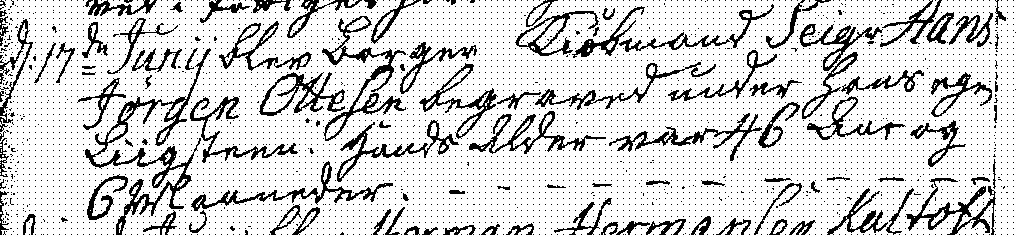 d: 17 dn Junij blev Borger Kiöbmand Seigr Hans
Jørgen Ottesen begraved under Hans egn
Liigsteen. Hands Alder var 46 Aar og
6 Maaneder. - - - - - - - - - -
Herman Hermansen Kaltoft